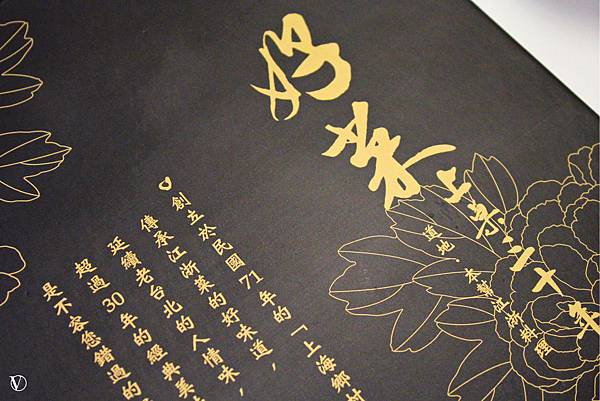 好菜
上桌三十年
道地。本幫江浙料理
創立於民國71年的「上海鄉村
傳承江浙菜的好味道，
延續老台北的人情味，
超過30年的經典美
是不容您錯過的